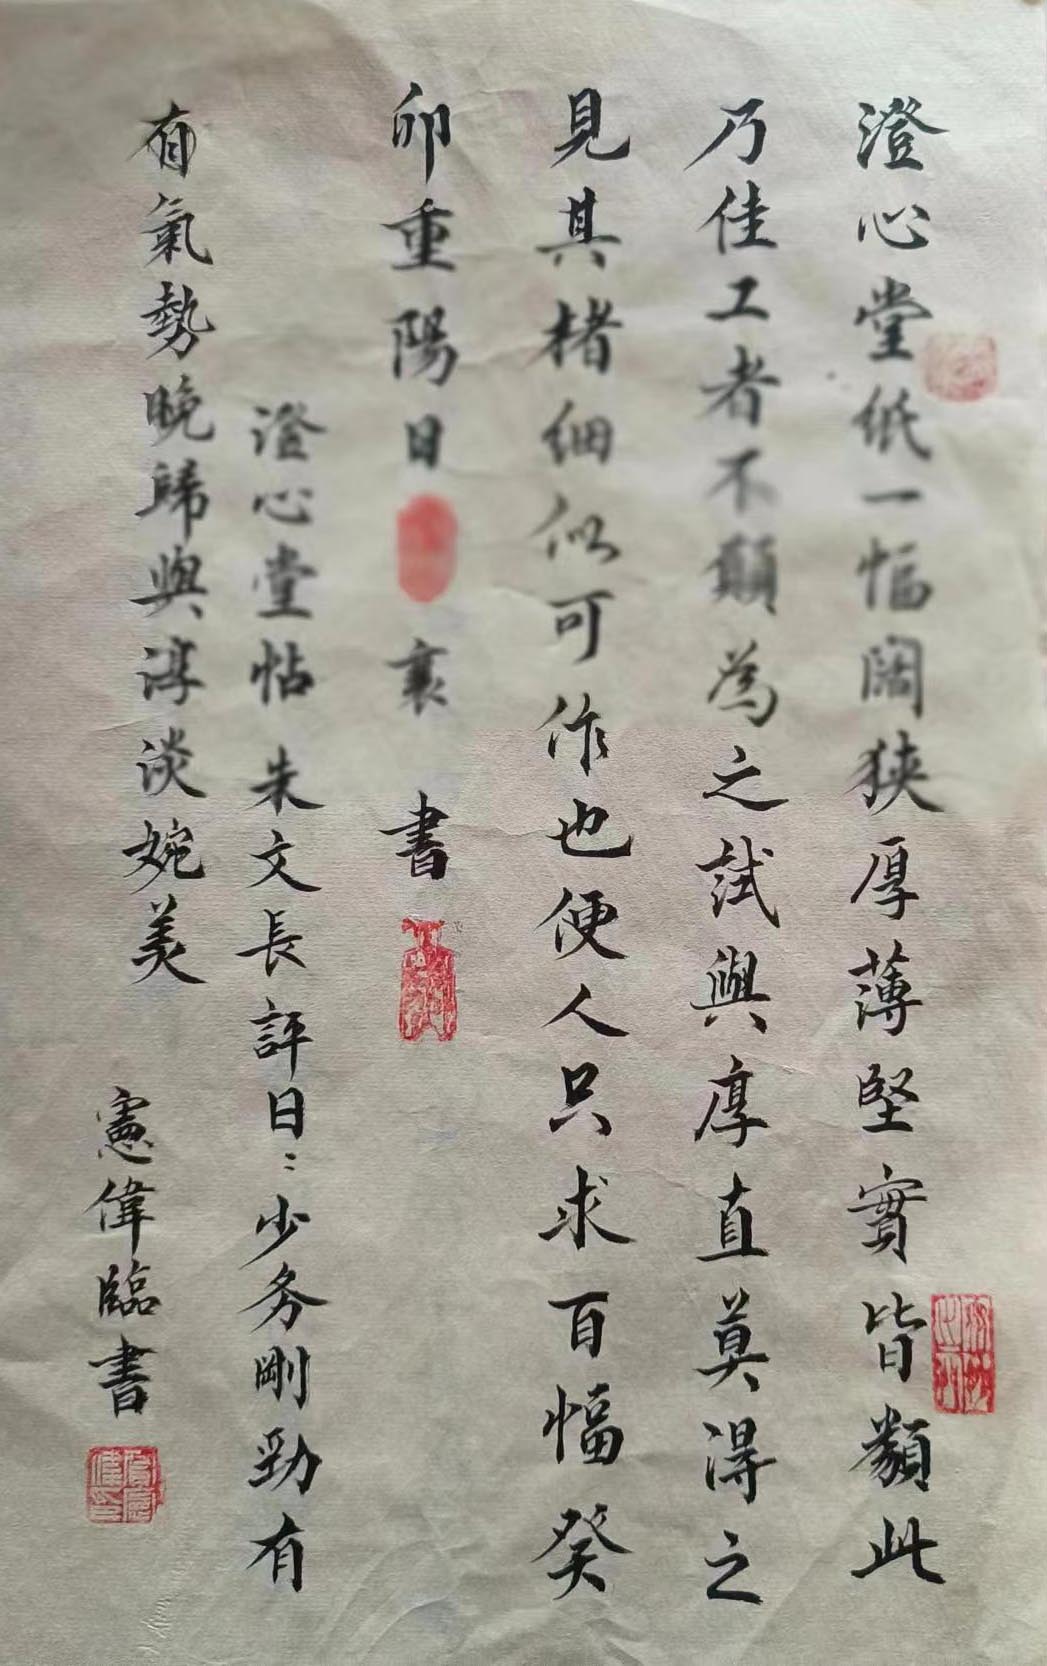 澄心堂紙一幅闊狹厚薄堅實皆類此
乃佳工者不願為之試與厚直莫得之
見其楮細似可作也便人只求百幅癸
卯重陽日
襄
書
澄心堂帖
朱文長評曰：少务剛勁有
有氣勢晚歸與淳淡婉美
憲偉臨書